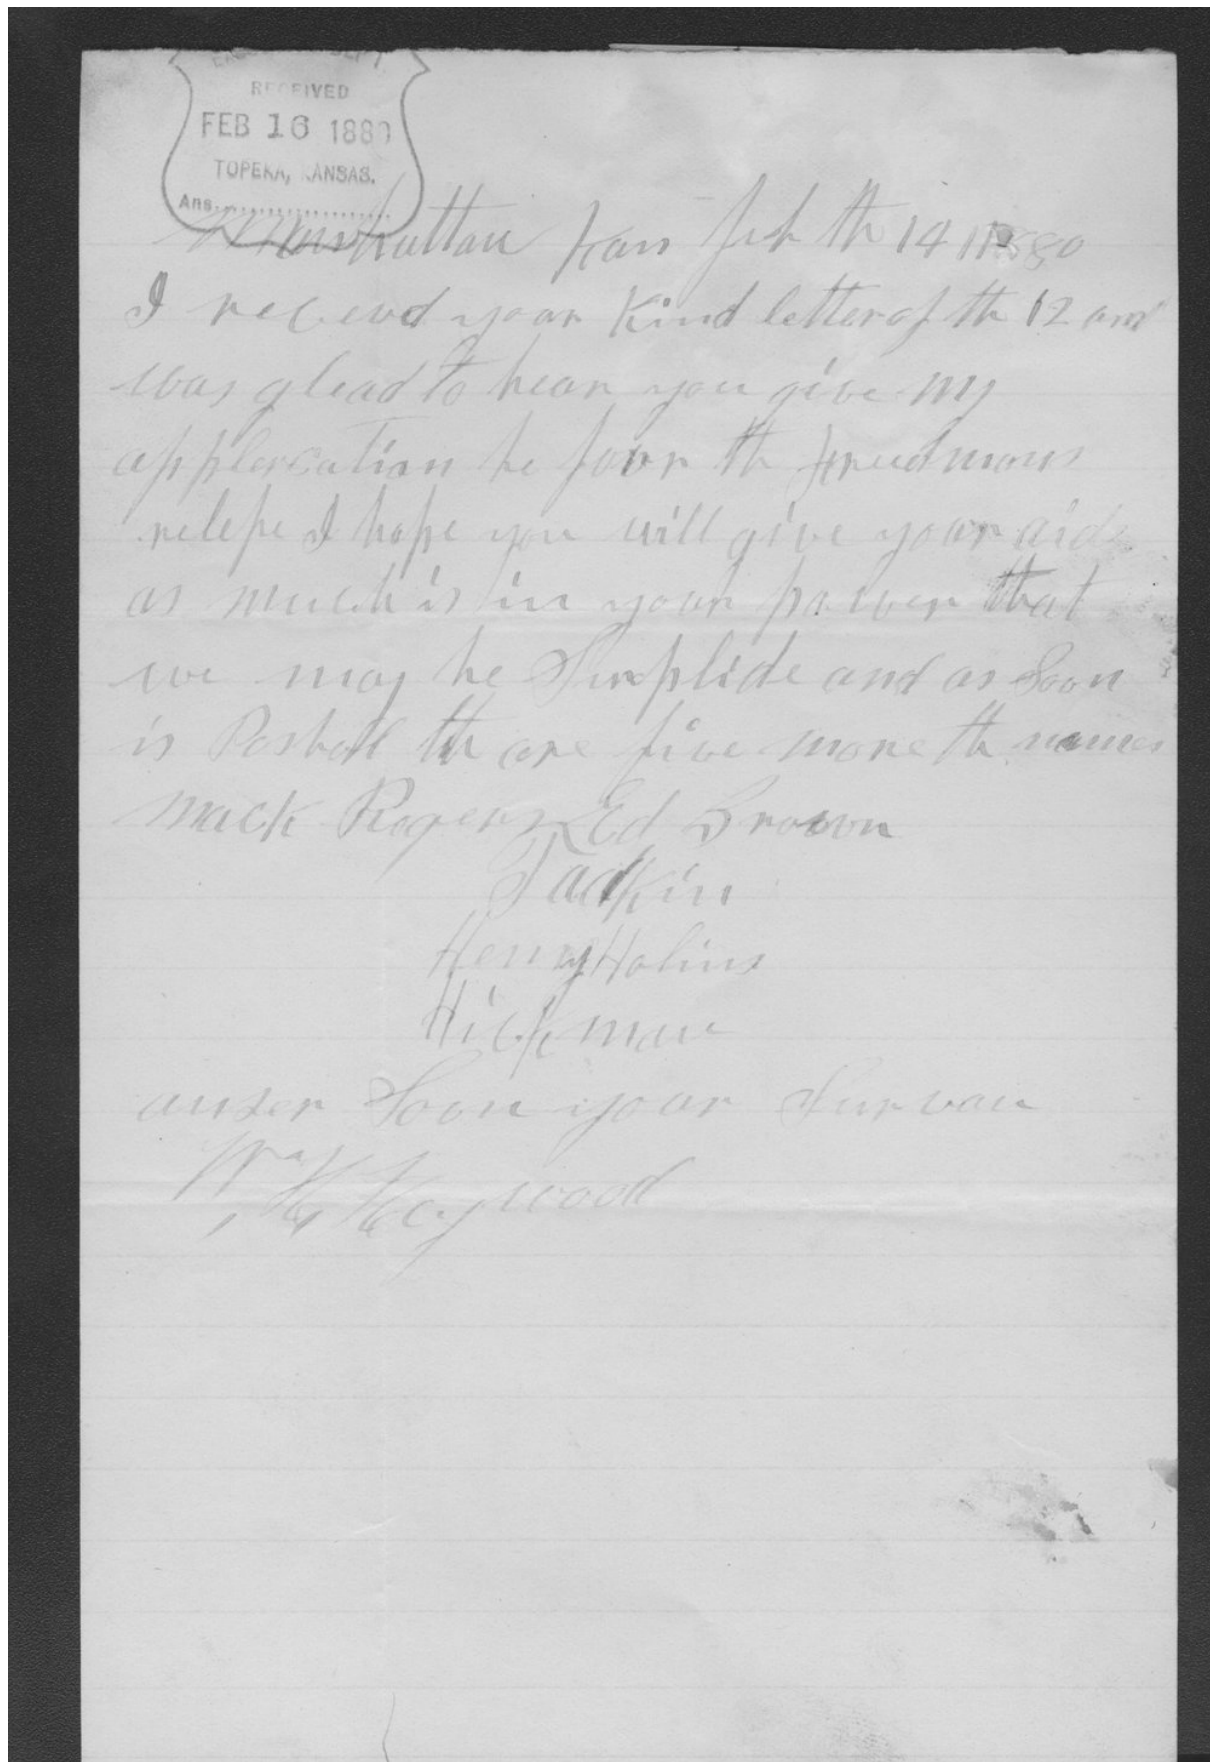 RECEIVED
FEB 16 1880
TOPEKA, KANSAS.
Ans.
Manhattan Kans Feb th 14 1880
I receivd your Kind letter of th 12 and
was glead to hear you give my
applercation be foor th freedmans
relefe I hope you will give your aide
as much is in your power that
we may be Surplide and as Soon
is Posball th are five more th names
Mack Rogers Ed Brown
Jadkin
Henry Holins
Hickman
anser Soon your Survan
Wm H Haywood